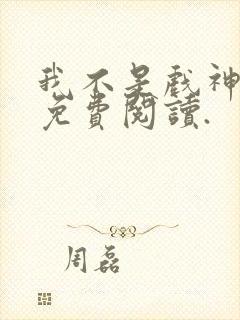 我不是戲神
免費閱讀.
周磊